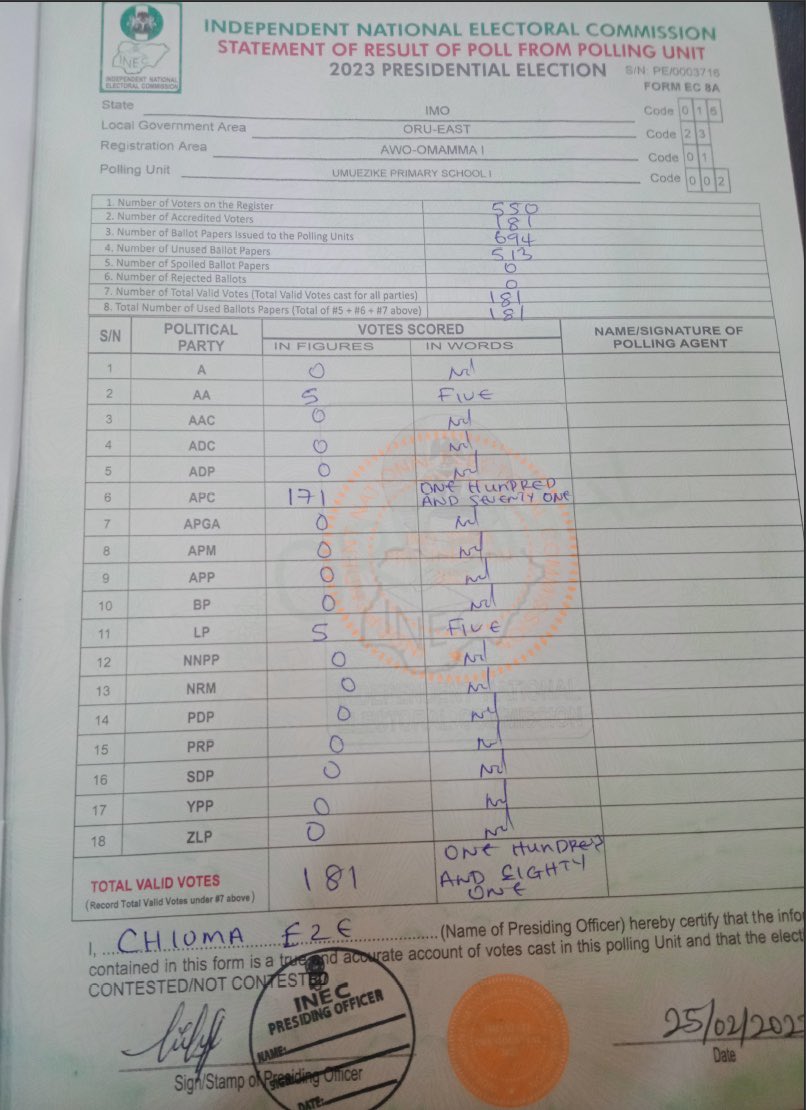 INEC
INDEPENDENT NATIONAL
ELECTORAL COMMISSION
INDEPENDENT NATIONAL ELECTORAL COMMISSION
STATEMENT OF RESULT OF POLL FROM POLLING UNIT
2023 PRESIDENTIAL ELECTION S/N: PE/0003716
FORM EC 8A
State IMO Code 0 1 6
Local Government Area ORU-EAST Code 2 3
Registration Area AWO-OMAMMA I Code 0 1
Polling Unit UMUEZIKE PRIMARY SCHOOL I Code 0 0 2
1. Number of Voters on the Register 550
2. Number of Accredited Voters 181
3. Number of Ballot Papers Issued to the Polling Units 694
4. Number of Unused Ballot Papers 513
5. Number of Spoiled Ballot Papers 0
6. Number of Rejected Ballots 0
7. Number of Total Valid Votes (Total Valid Votes cast for all parties) 181
8. Total Number of Used Ballots Papers (Total of #5 + #6 + #7 above) 181
S/N POLITICAL PARTY VOTES SCORED NAME/SIGNATURE OF POLLING AGENT
IN FIGURES IN WORDS
1 A 0 Nil
2 AA 5 FIVE
3 AAC 0 Nil
4 ADC 0 Nil
5 ADP 0 Nil
6 APC 171 ONE HUNDRED AND SEVENTY ONE
7 APGA 0 Nil
8 APM 0 Nil
9 APP 0 Nil
10 BP 0 Nil
11 LP 5 FIVE
12 NNPP 0 Nil
13 NRM 0 Nil
14 PDP 0 Nil
15 PRP 0 Nil
16 SDP 0 Nil
17 YPP 0 Nil
18 ZLP 0 Nil
TOTAL VALID VOTES 181 ONE HUNDRED AND EIGHTY ONE
(Record Total Valid Votes under #7 above)
I, CHIOMA EZE (Name of Presiding Officer) hereby certify that the info
contained in this form is a true and accurate account of votes cast in this polling Unit and that the elect
CONTESTED/NOT CONTESTED
INEC
PRESIDING OFFICER
NAME:
DATE:
25/02/202
Sign/Stamp of Presiding Officer
Date